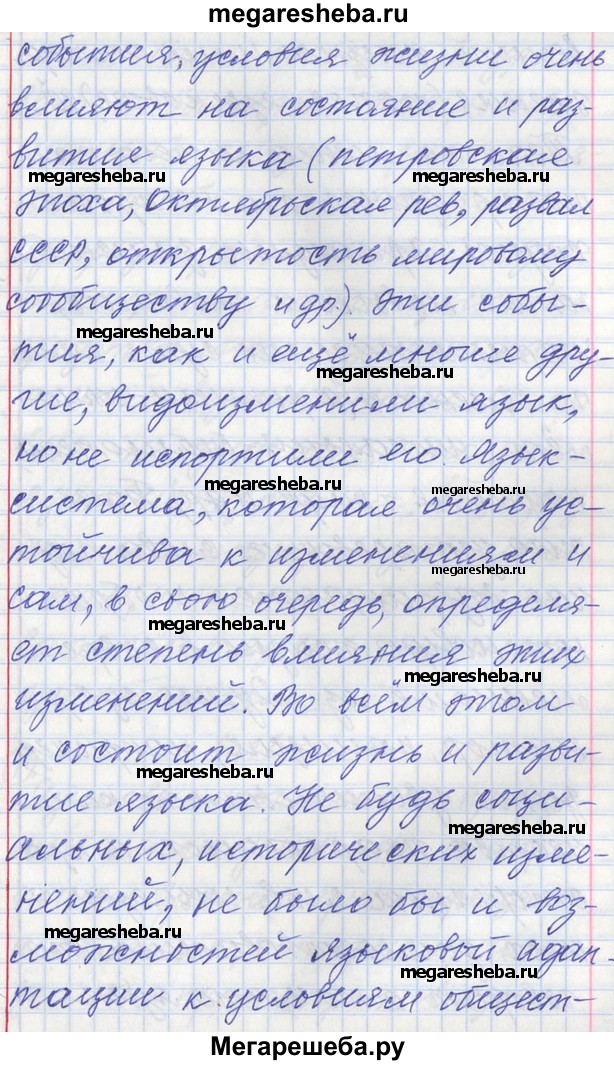 megaresheba.ru
события, условия жизни очень
влияют на состояние и раз-
вития языка (петровская
megaresheba.ru megaresheba.ru
эпоха, Октябрьская рев, развал
СССР, открытость мировому
сообществу и др.). Эти собы-
megaresheba.ru
тия, как и ещё многие дру-
megaresheba.ru
гие, видоизменили язык,
но не испортили его. Язык-
megaresheba.ru megaresheba.ru
система, которая очень ус-
тойчива к изменениям и
megaresheba.ru
сам, в свою очередь, определя-
megaresheba.ru
ет степень влияния этих
megaresheba.ru
изменений. Во всём этом
и состоит жизнь и разви-
megaresheba.ru
тие языка. Не будь соци-
megaresheba.ru
альных, исторических изме-
нений, не было бы и воз-
megaresheba.ru
можностей языковой адап-
megaresheba.ru
тации к условиям общест-
Мегарешеба.ру